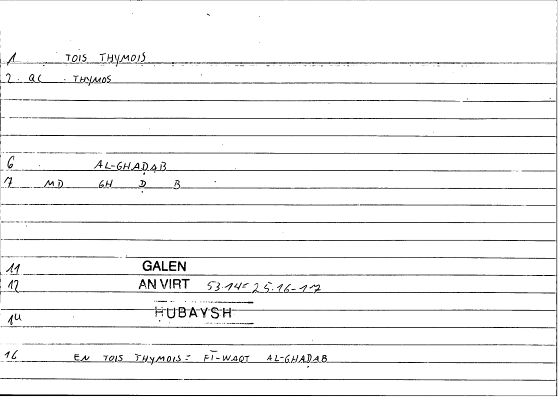 1 TOIS THYMOIS
2 QC THYMOS
6 AL-GHAḌAB
7 MD GH Ḍ B
11 GALEN
12 AN VIRT 53.14=25.16-17
14 HUBAYSH
16 EN TOIS THYMOIS= FĪ-WAQT AL-GHAḌAB